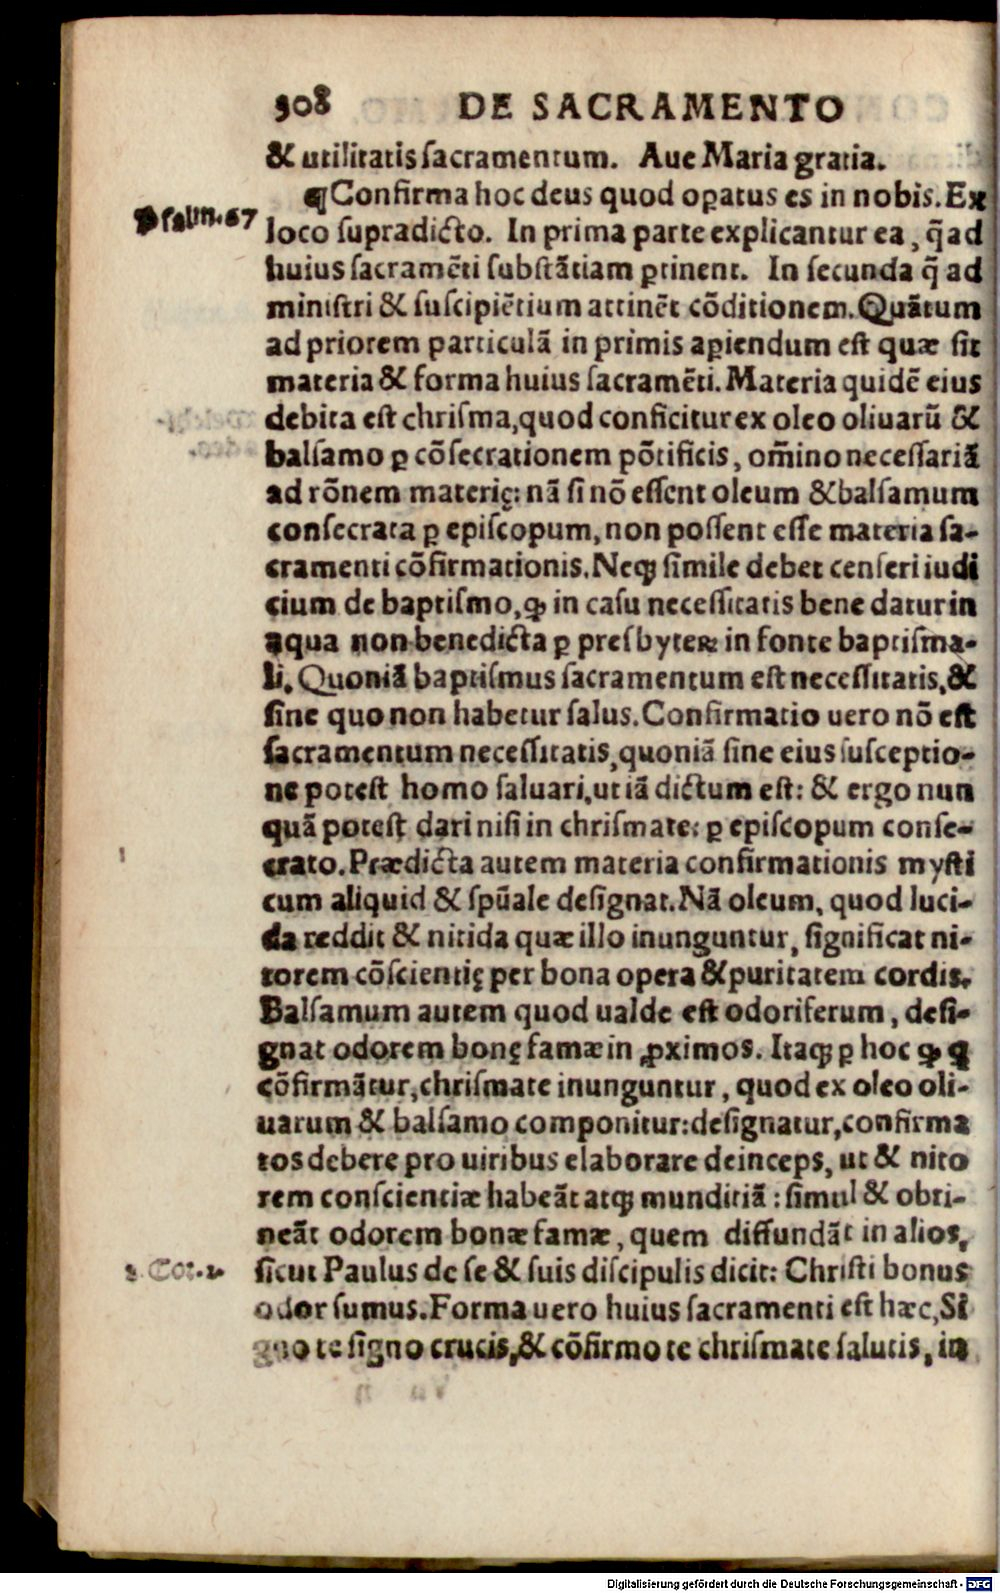 308 DE SACRAMENTO
& utilitatis sacramentum. Aue Maria gratia.
¶Confirma hoc deus quod oꝑatus es in nobis. Ex
Psalm. 67
loco supradicto. In prima parte explicantur ea, q̃ ad
huius sacramẽti substãtiam ꝑtinent. In secunda q̃ ad
ministri & suscipiẽtium attinẽt cõditionem. Quãtum
ad priorem particulã in primis aꝑiendum est quæ sit
materia & forma huius sacramẽti. Materia quidẽ eius
debita est chrisma, quod conficitur ex oleo oliuarũ &
balsamo ꝑ cõsecrationem põtificis, om̃ino necessariã
ad rõnem materię: nã si nõ essent oleum & balsamum
consecrata ꝑ episcopum, non possent esse materia sa-
cramenti cõfirmationis. Neqꝫ simile debet censeri iudi
cium de baptismo, ꝙ in casu necessitatis bene datur in
aqua non benedicta ꝑ presbyteꝝ in fonte baptisma-
li. Quoniã baptismus sacramentum est necessitatis, &
sine quo non habetur salus. Confirmatio uero nõ est
sacramentum necessitatis, quoniã sine eius susceptio-
ne potest homo saluari, ut iã dictum est: & ergo nun
quã potest dari nisi in chrismate: ꝑ episcopum conse-
crato. Prædicta autem materia confirmationis mysti
cum aliquid & spũale designat. Nã oleum, quod luci-
da reddit & nitida quæ illo inunguntur, significat ni-
torem cõscientię per bona opera & puritatem cordis.
Balsamum autem quod ualde est odoriferum, desi-
gnat odorem bonę famæ in ꝓximos. Itaqꝫ ꝑ hoc ꝙ ꝗ
cõfirmãtur, chrismate inunguntur, quod ex oleo oli-
uarum & balsamo componitur: designatur, confirma
tos debere pro uiribus elaborare deinceps, ut & nito
rem conscientiæ habeãt atqꝫ munditiã: simul & obti-
neãt odorem bonæ famæ, quem diffundãt in alios,
2. Cor. 2
sicut Paulus de se & suis discipulis dicit: Christi bonus
odor sumus. Forma uero huius sacramenti est hæc, Si
gno te signo crucis, & cõfirmo te chrismate salutis, in
Digitalisierung gefördert durch die Deutsche Forschungsgemeinschaft - DFG